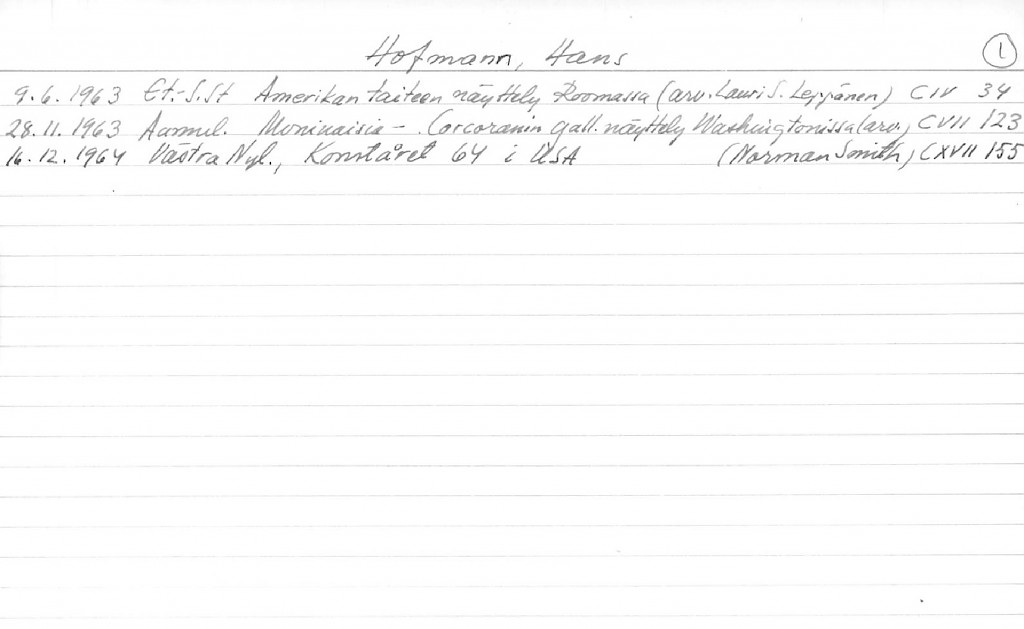 Hofmann, Hans 1
9.6.1963 Et.-S.St Amerikan taiteen näyttely Roomassa (arv. Lauri S. Leppänen) CIV 34
28.11.1963 Aamul. Moninaisia - Corcoranin gall. näyttely Washingtonissa (arv.) CVII 123
16.12.1964 Västra Nyl., Konståret 64 i USA (Norman Smith) CXVII 155